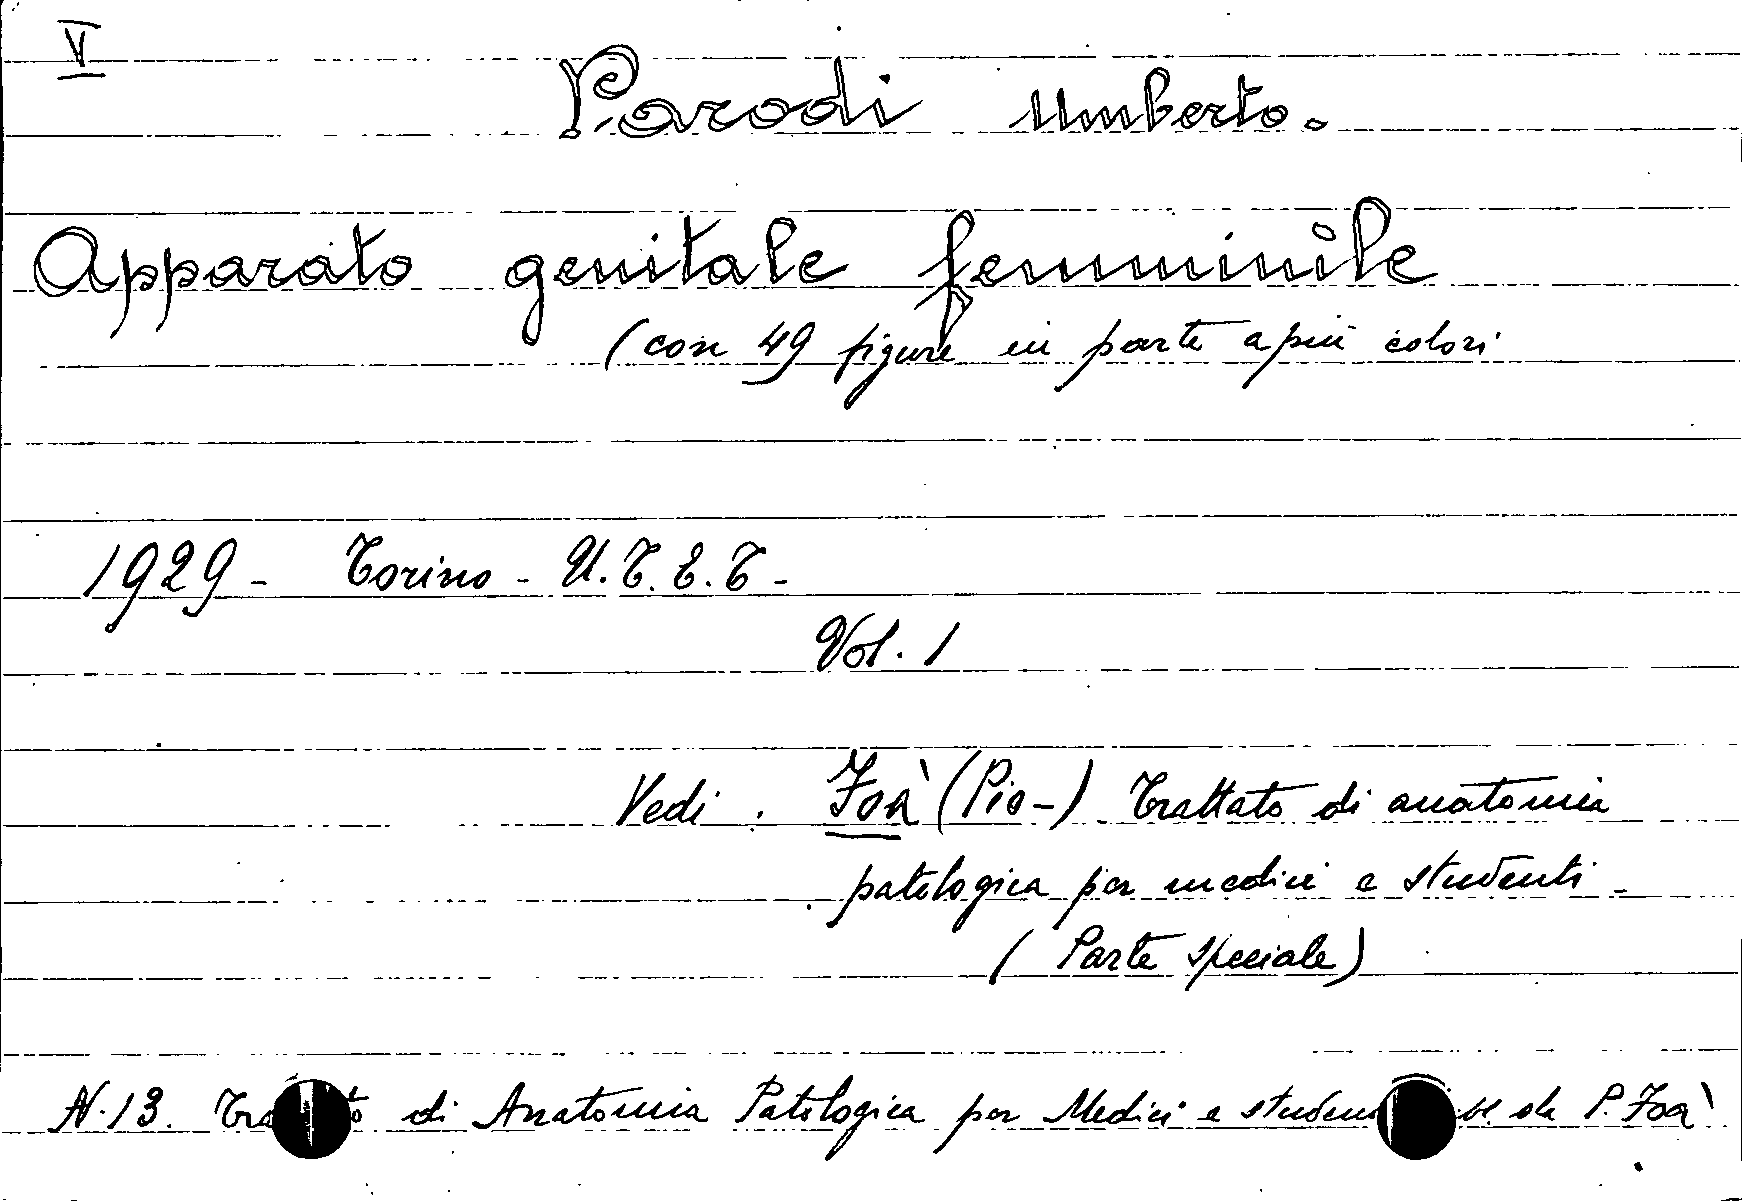 V
Parodi Umberto.
Apparato genitale femminile
(con 49 figure in parte a più colori
1929 - Torino - U.T.E.T -
Vol. 1
Vedi : Foà (Pio-) Trattato di anatomia
patologica per medici e studenti -
(Parte speciale)
N.13. di Anatomia Patologica per Medici e da P. Foà